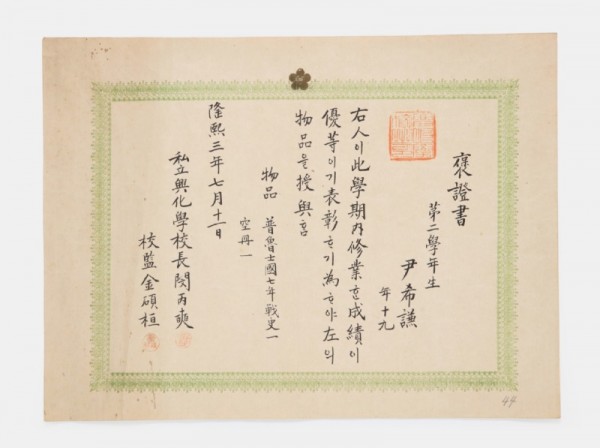 褒證書
第二學年生
尹希謙
年十九
右人이此學期內修業ᄒᆞᆫ成績이
優等이기表彰ᄒᆞ기爲ᄒᆞ야左의
物品을授與ᄒᆞᆷ
物品 普魯士國七年戰史一
空冊一
隆熙三年七月十一日
私立興化學校長閔丙奭
校監金碩桓
44